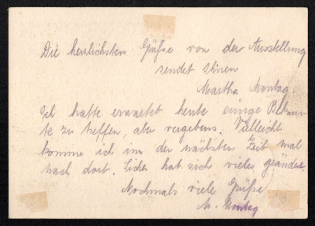 Die herzlichsten Grüße von der Ausstellung
sendet Ihnen
Martha Montag
Ich hatte erwartet heute einige Bekann-
te zu treffen, aber vergebens. Vielleicht
komme ich in der nächsten Zeit mal
nach dort. Leider hat sich vieles geändert.
Nochmals viele Grüße
M. Montag